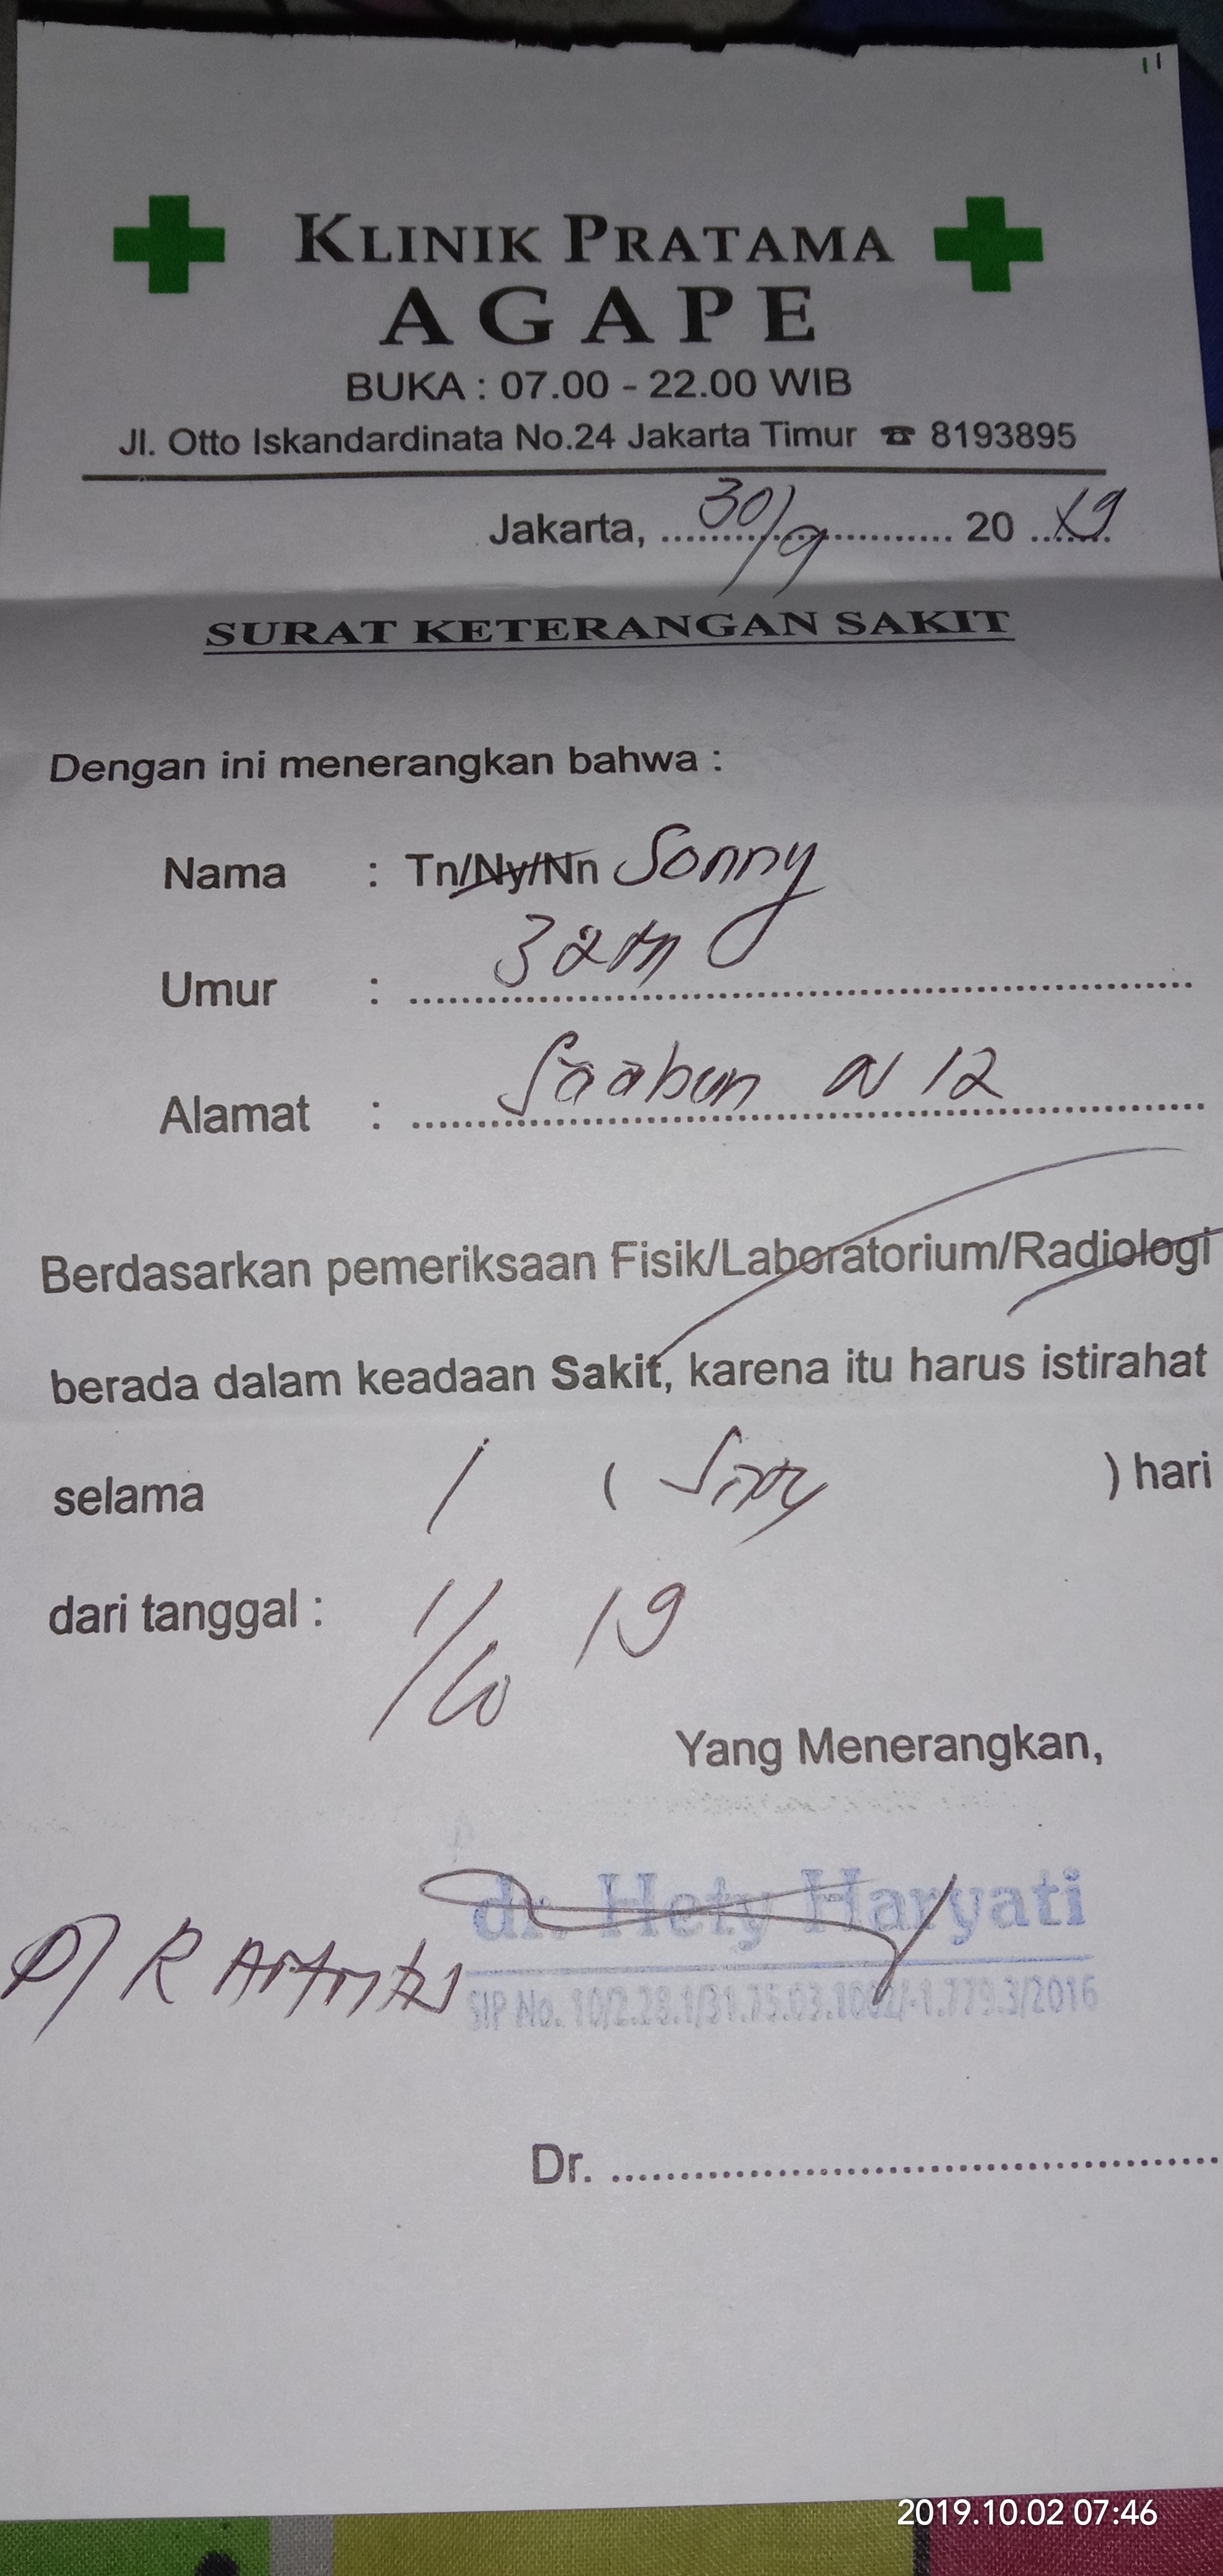 KLINIK PRATAMA
AGAPE
BUKA : 07.00 - 22.00 WIB
Jl. Otto Iskandardinata No.24 Jakarta Timur ☎ 8193895
Jakarta, 30/9 20 19
SURAT KETERANGAN SAKIT
Dengan ini menerangkan bahwa :
Nama : Tn/Ny/Nn Sonny
Umur : 32 th
Alamat : 12
Berdasarkan pemeriksaan Fisik/Laboratorium/Radiologi
berada dalam keadaan Sakit, karena itu harus istirahat
selama 1 ( ) hari
dari tanggal : 1/10 19
Yang Menerangkan,
dr. Hety Haryati
D/ R Artritis
SIP No. 10/2.28.1/31.75.03.1002/-1.779.3/2016
Dr.
2019.10.02 07:46